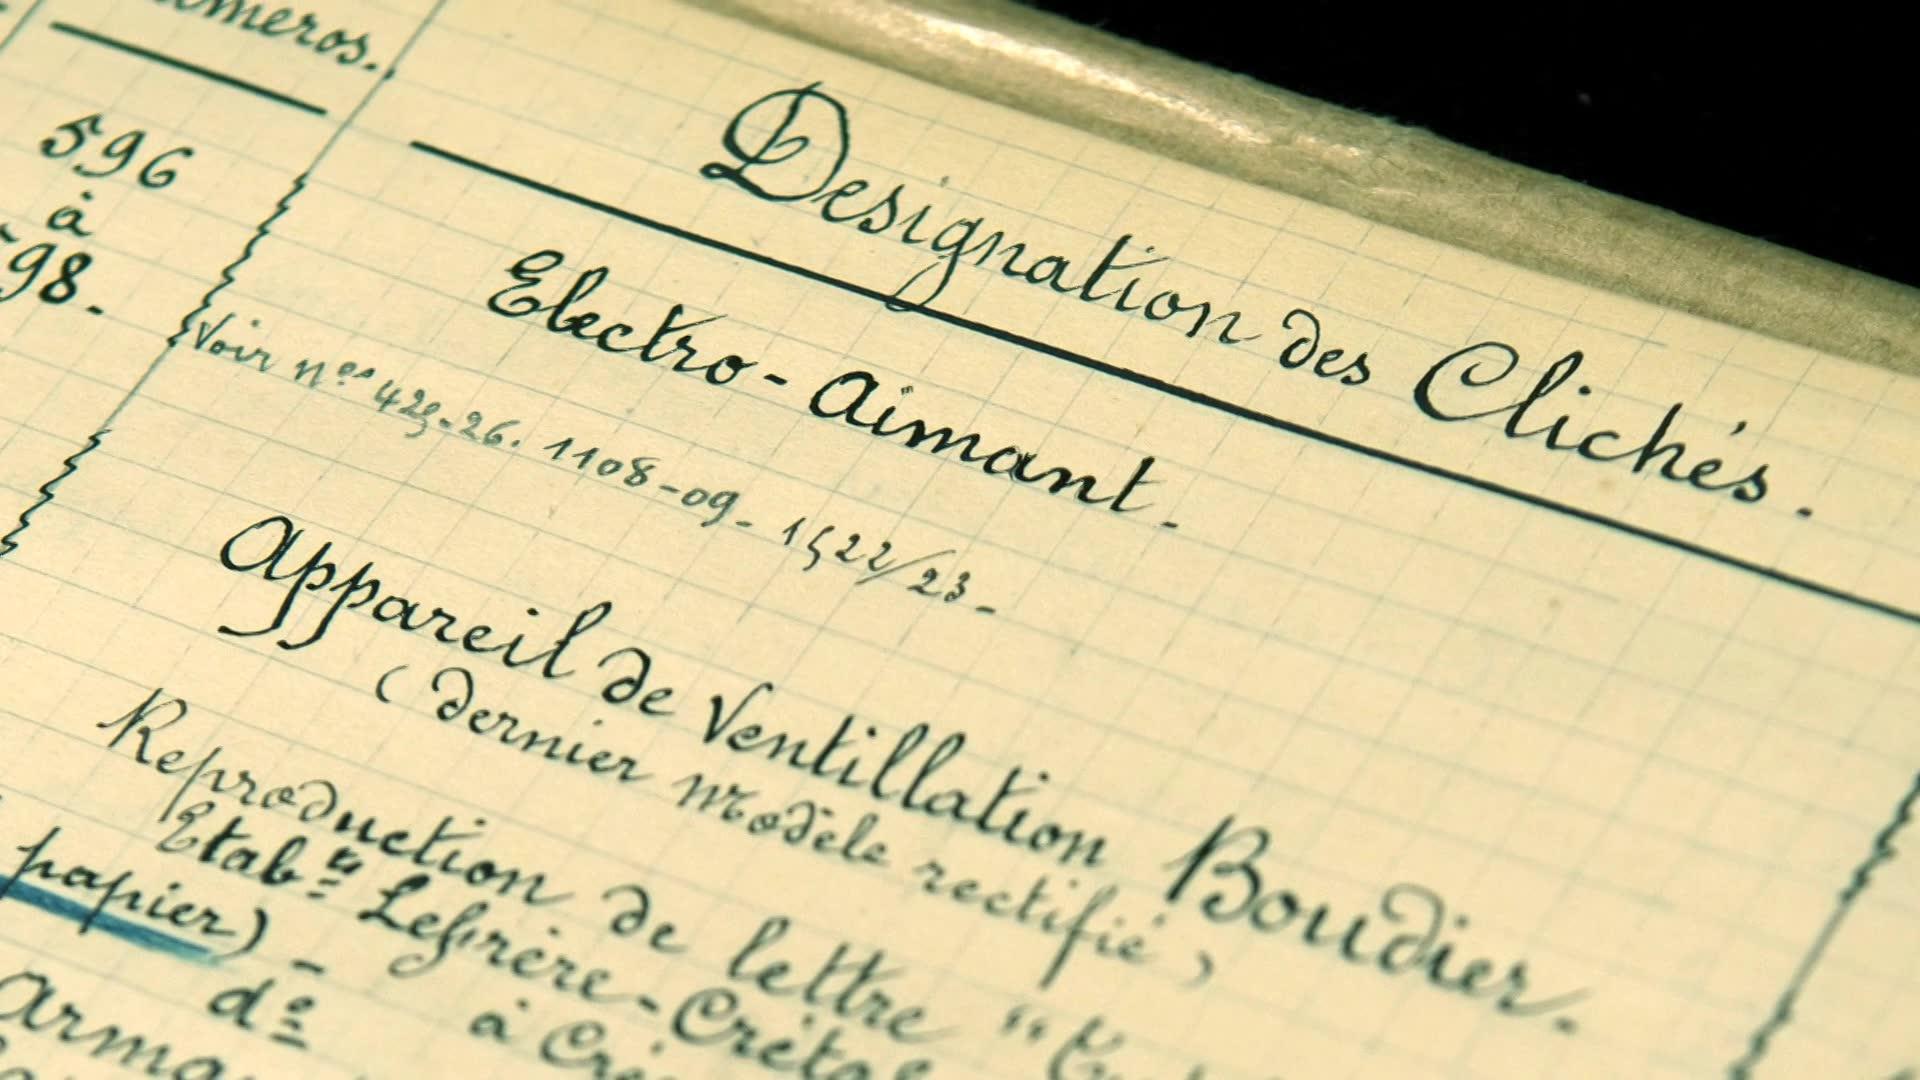 Designation des Clichés.
596
à
Electro-Aimant.
98.
Voir nos 425-26. 1108-09. 1522/23-
Appareil de Ventillation Boudier.
(dernier modèle rectifié)
Reproduction de lettre "
Etabts Lefrère-
papier) -
do à